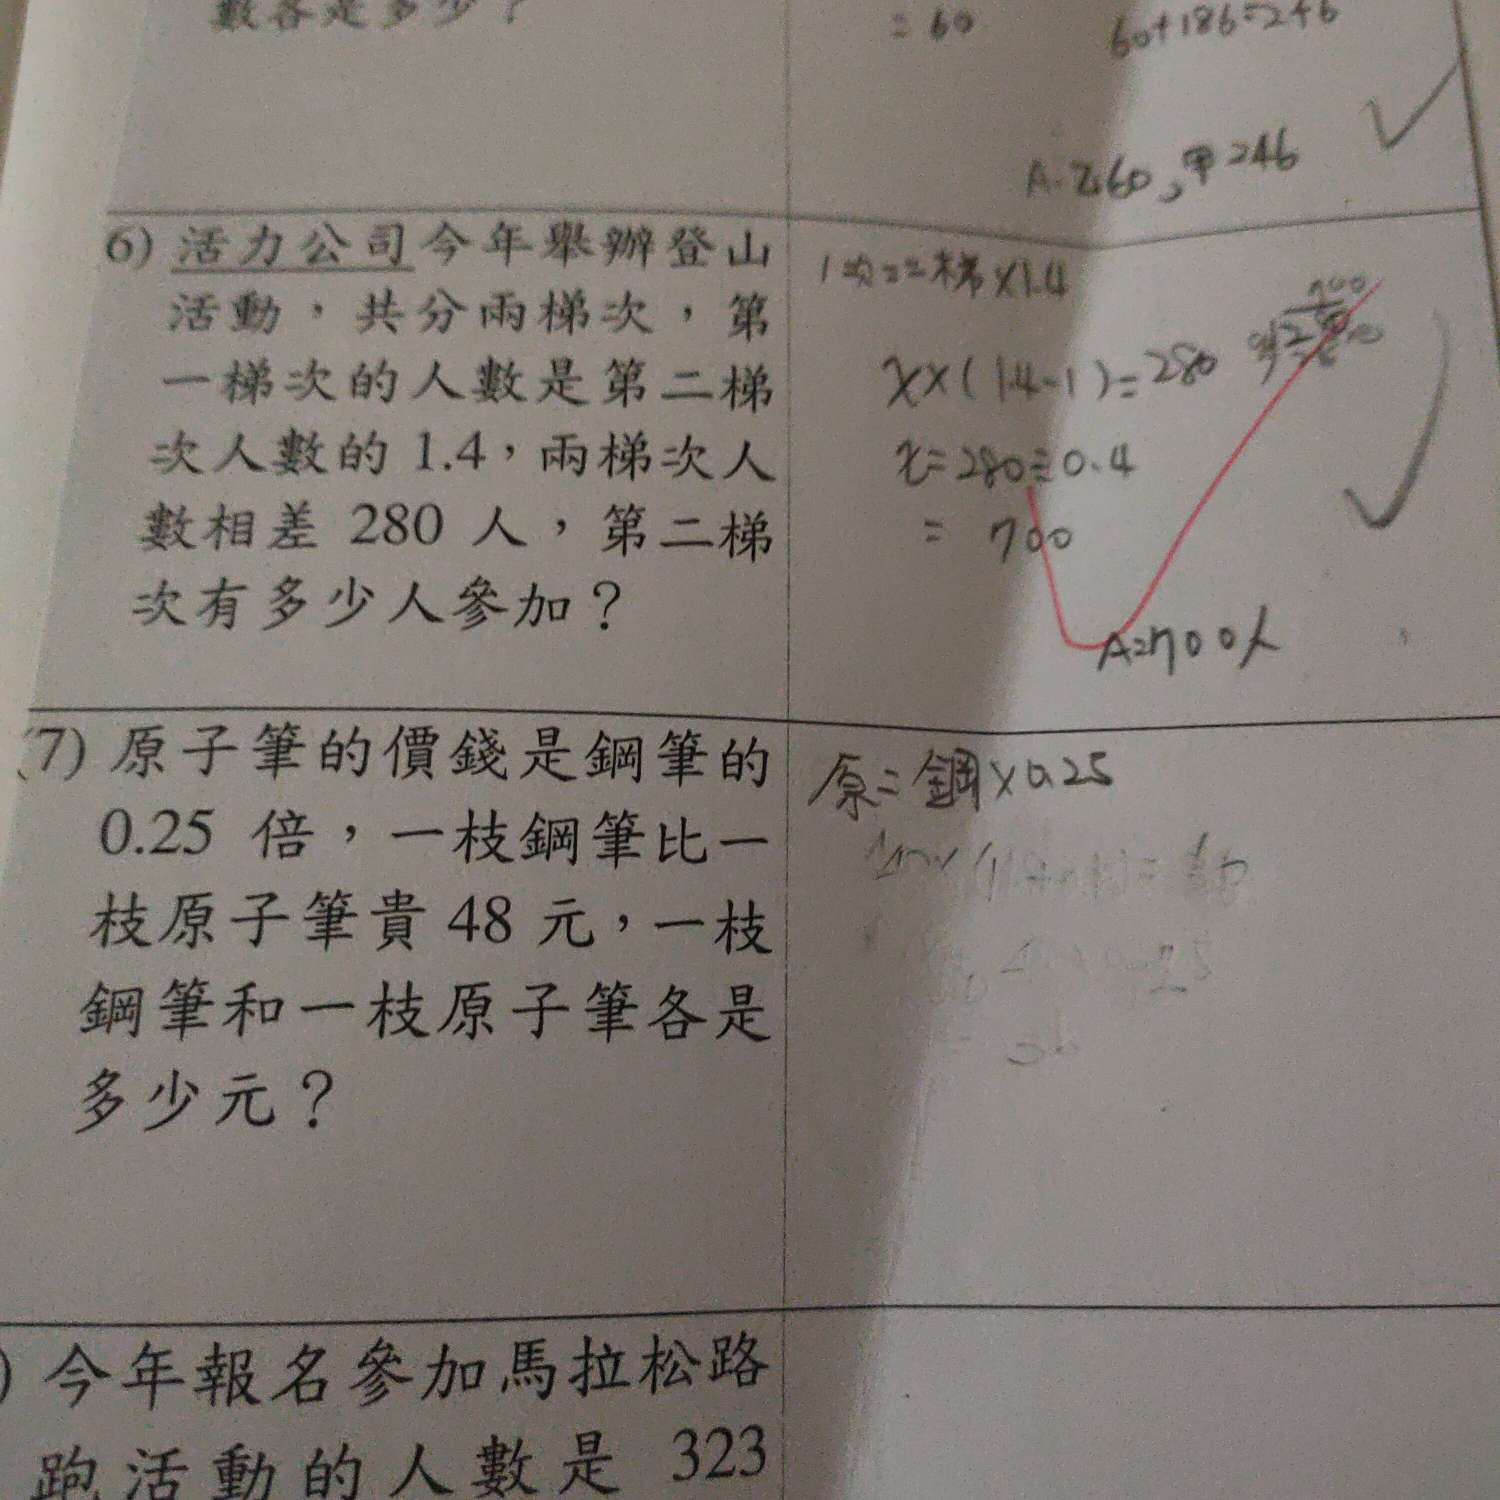 數各是多少？
= 60
60+186=246
A. 乙60，甲246
6) 活力公司今年舉辦登山
活動，共分兩梯次，第
一梯次的人數是第二梯
次人數的 1.4，兩梯次人
數相差 280 人，第二梯
次有多少人參加？
x×(1.4-1)=280
x=280÷0.4
= 700
A=700人
(7) 原子筆的價錢是鋼筆的
0.25 倍，一枝鋼筆比一
枝原子筆貴 48 元，一枝
鋼筆和一枝原子筆各是
多少元？
原=鋼×0.25
) 今年報名參加馬拉松路
跑活動的人數是 323